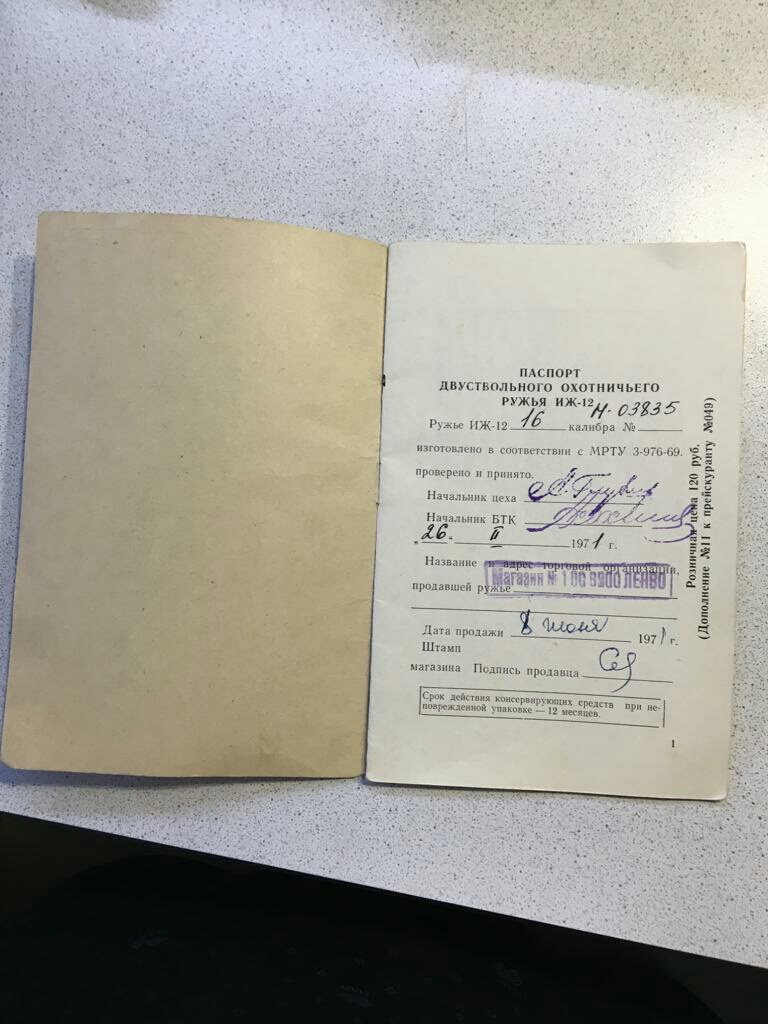 ПАСПОРТ
ДВУСТВОЛЬНОГО ОХОТНИЧЬЕГО
РУЖЬЯ ИЖ-12
Ружье ИЖ-12 16 калибра № М-03835
изготовлено в соответствии с МРТУ 3-976-69.
проверено и принято.
Начальник цеха
Начальник БТК
„26„ II 1971 г.
Название и адрес торговой организации,
продавшей ружье Магазин № 1 ОС ВВОО ЛЕНВО
Дата продажи 8 июня 1971 г.
Штамп
магазина Подпись продавца
Срок действия консервирующих средств при не-
поврежденной упаковке — 12 месяцев.
1
Розничная цена 120 руб.
(Дополнение №11 к прейскуранту №049)